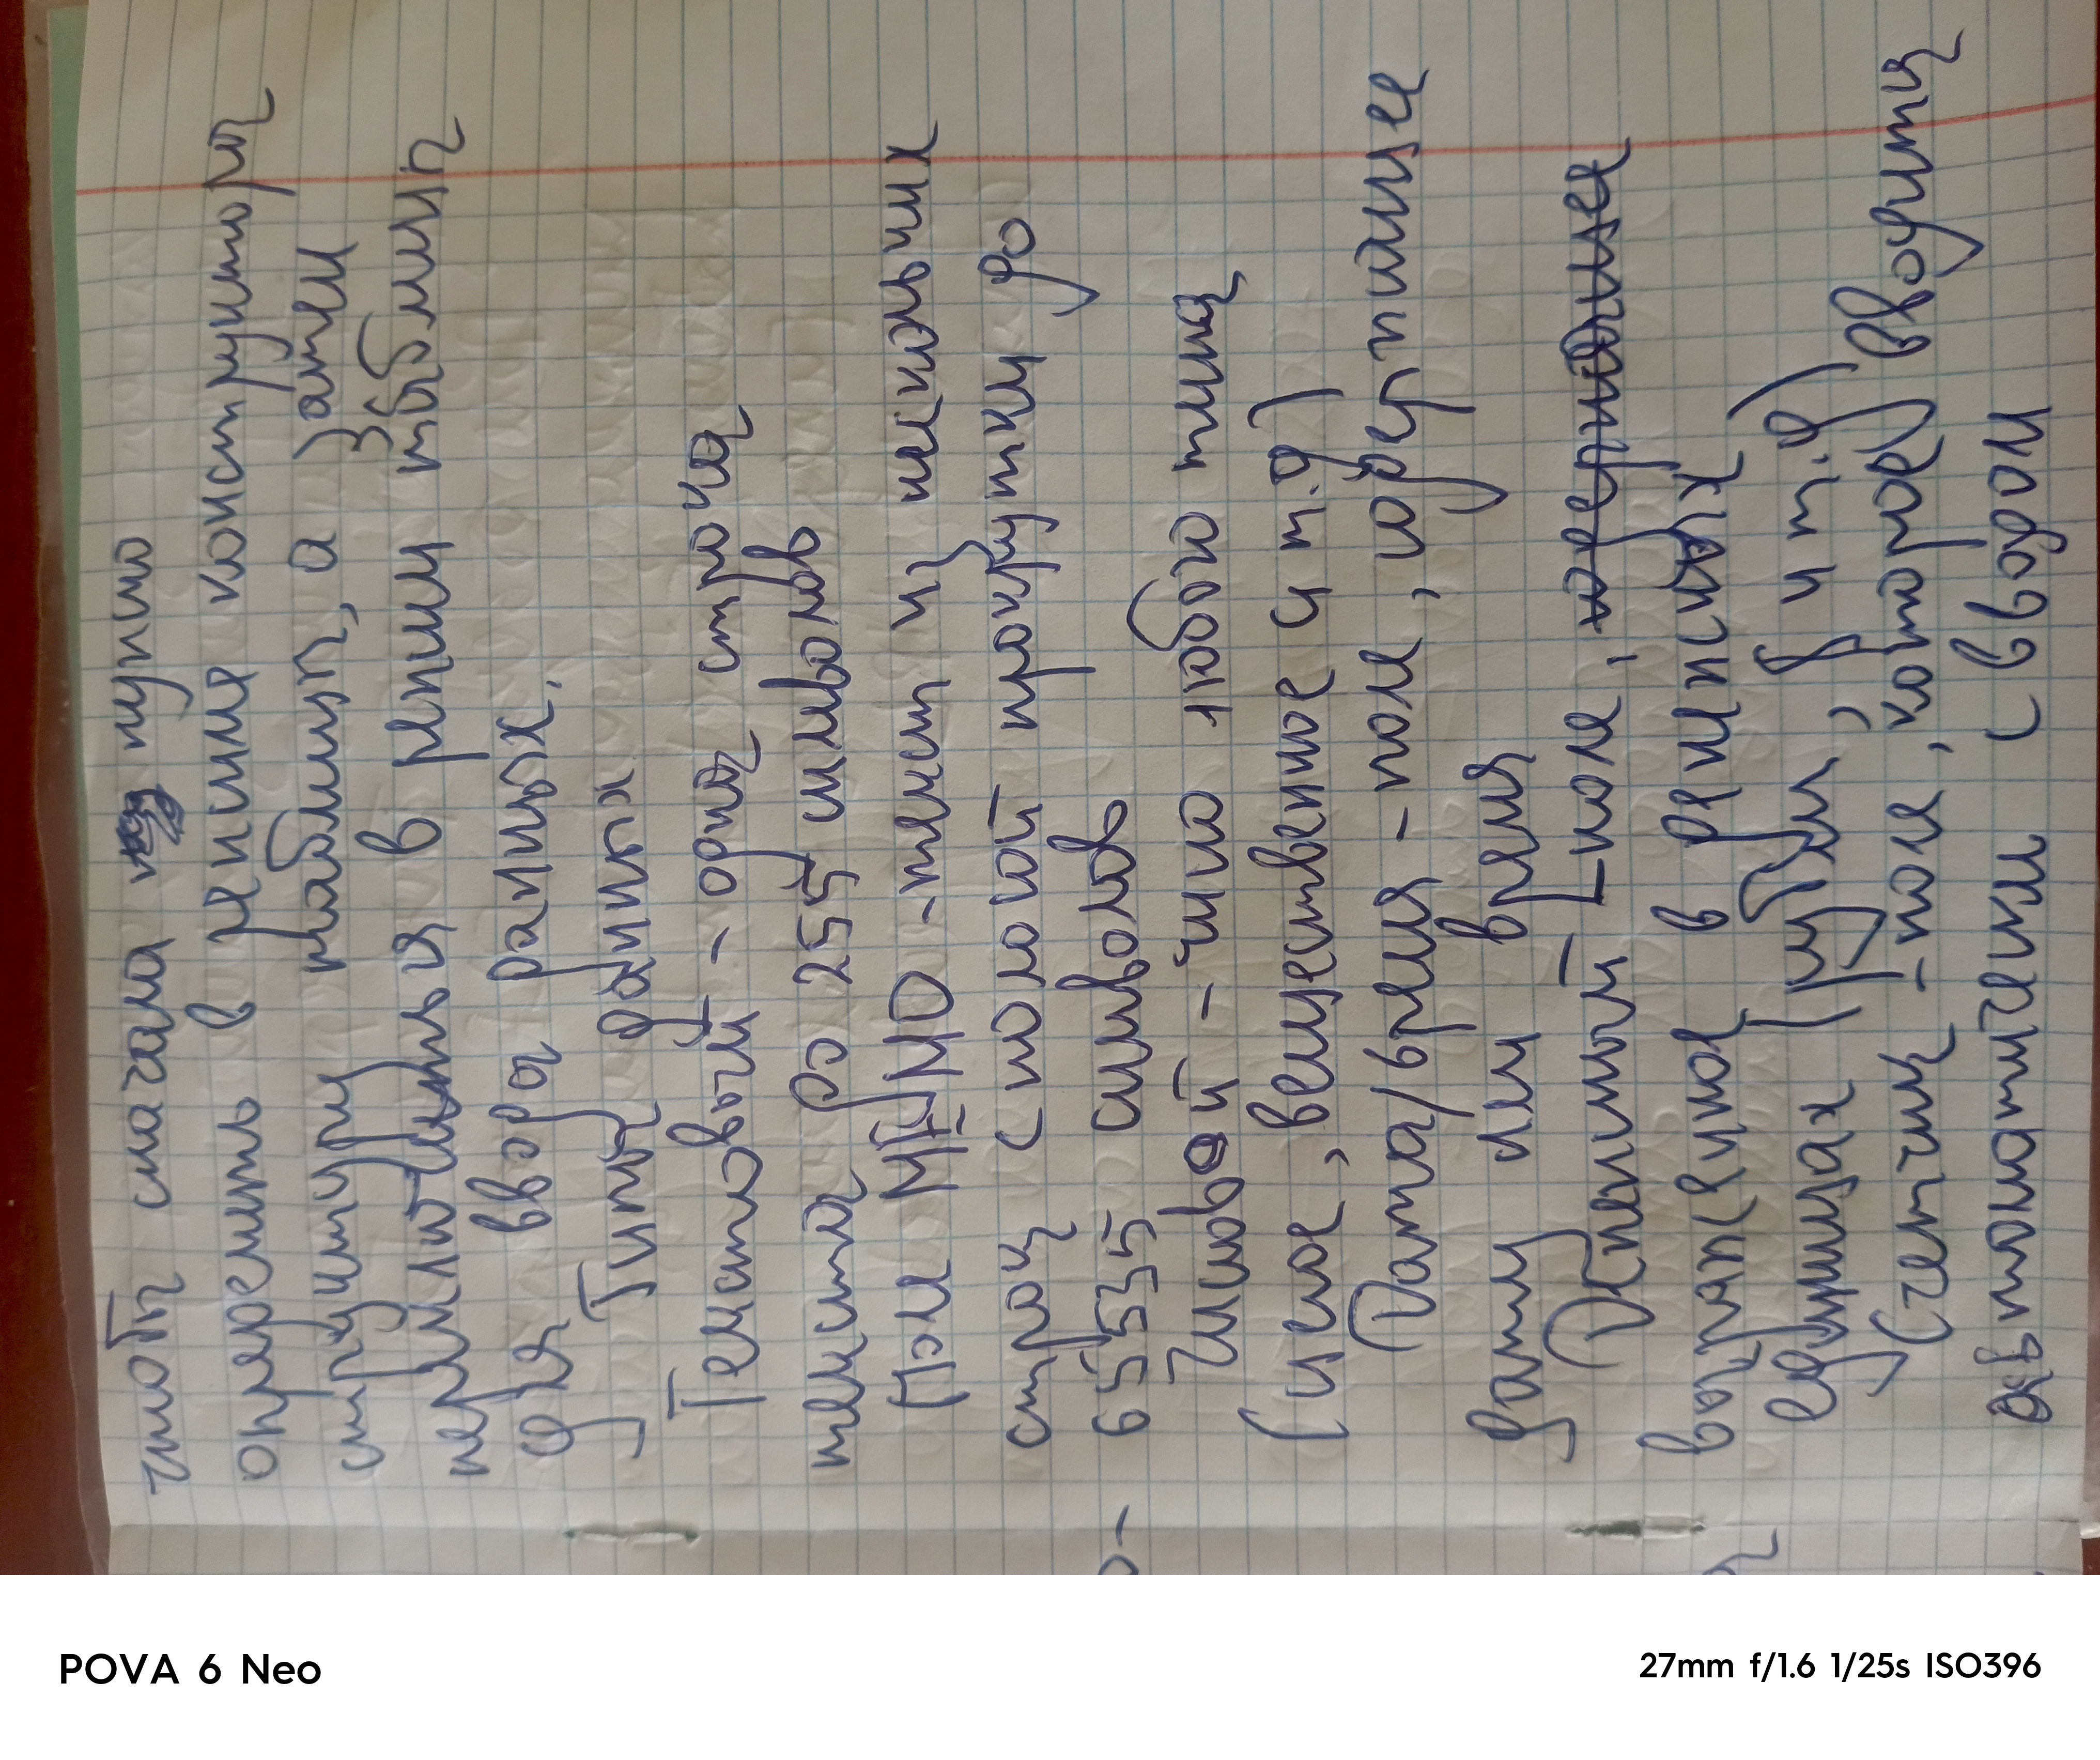 чтобы сначала нужно
определить в режиме конструктора
структуру таблицы, а затем
переключиться в режим таблицы
для ввода данных.
Типы данных
Текстовый - одна строка
текста до 255 символов
Поле МЕМО - текст из нескольких
строк с полосой прокрутки до
65535 символов
Числовой - число любого типа
(целое, вещественное и т.д)
Дата/время - поле, содержащее
дату или время
Денежный - поле,
выраженное в денежных
единицах (рубли, $ и т.д)
Счетчик - поле, которое вводится
автоматически с вводом
POVA 6 Neo
27mm f/1.6 1/25s ISO396